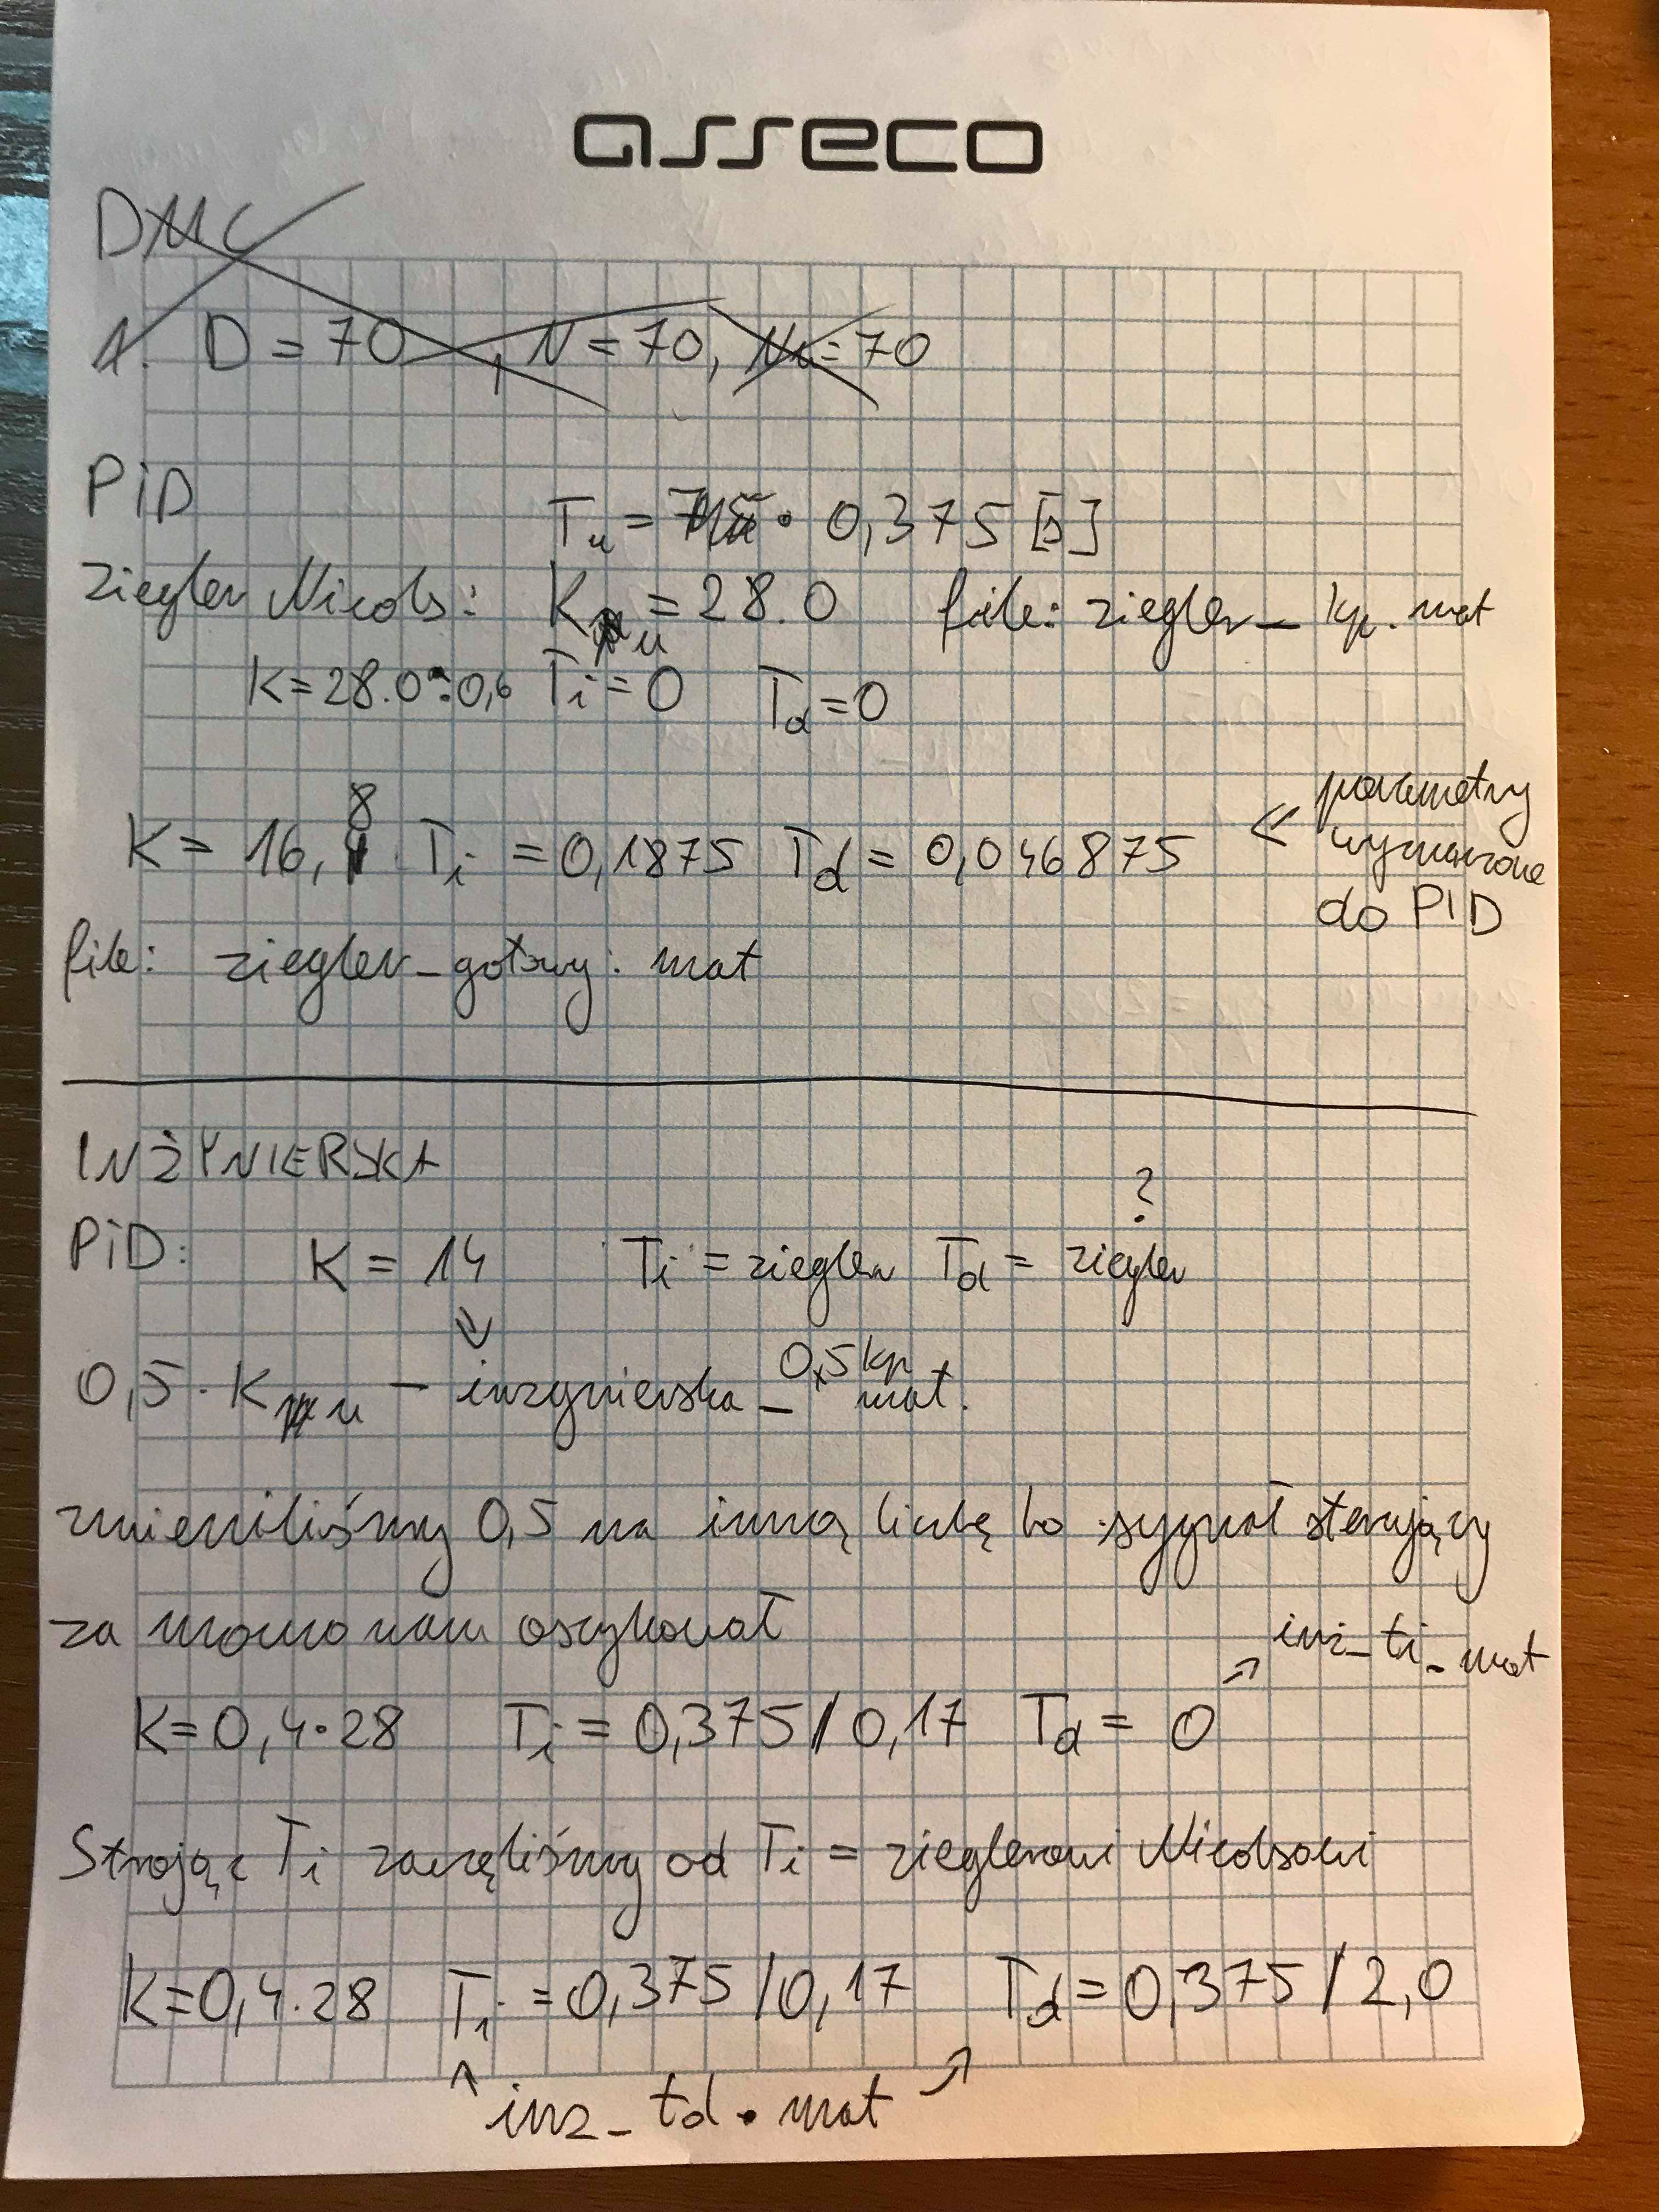 asseco
DMC
1. D = 70, N = 70, Nu = 70
PiD
Tu = 0,375 [s]
Ziegler Nicols: Ku = 28.0 file: ziegler_kp.mat
K = 28.0 · 0,6 Ti = 0 Td = 0
K = 16,8 Ti = 0,1875 Td = 0,046875 < parametry
wyznaczone
do PID
file: ziegler_gotowy.mat
INŻYNIERSKA
PiD: K = 14 Ti = ziegler Td = ziegler ?
0,5 · Ku - inzynierska_0,5kp.mat
zmieniliśmy 0,5 na inną liczbę bo sygnał sterujący
za mocno nam oscylował
inz_ti_mat
K = 0,4 · 28 Ti = 0,375 / 0,17 Td = 0
Strojąc Ti zaczęliśmy od Ti = zieglerowi Nicolsowi
K = 0,4 · 28 Ti = 0,375 / 0,17 Td = 0,375 / 2,0
inz_td.mat